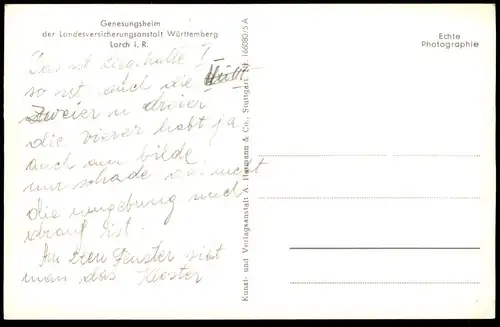 Genesungsheim
der Landesversicherungsanstalt Württemberg
Lorch i. R.
Echte
Photographie
Das ist Liegehalle I
so ist auch die
Zweier u dreier
die Vierer habt ja
auch am bilde
nur schade das nicht
die umgebung auch
drauf ist.
An 2ten Fenster sieht
man das Kloster
Kunst- und Verlagsanstalt A. & Co., Stuttgart 166080/5 A